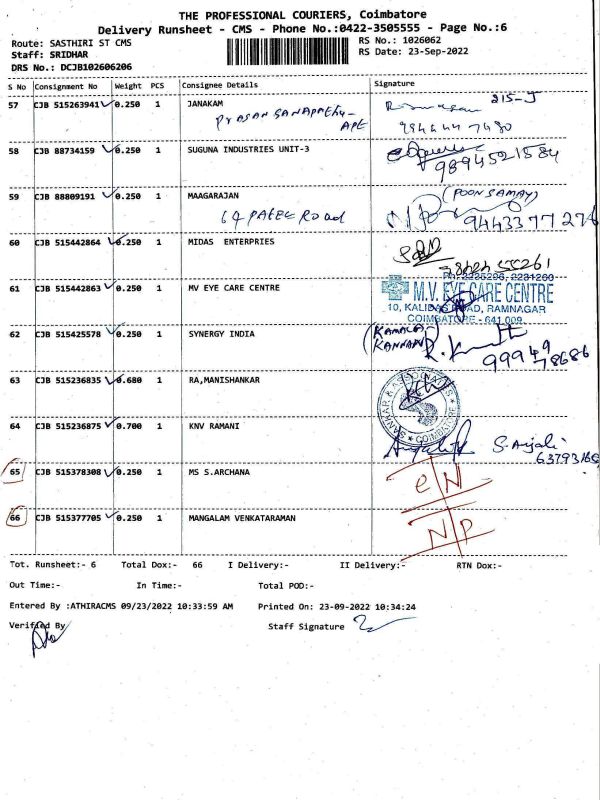 THE PROFESSIONAL COURIERS, Coimbatore
Delivery Runsheet - CMS - Phone No.:0422-3505555 - Page No.:6
Route: SASTHIRI ST CMS RS No.: 1026062
Staff: SRIDHAR RS Date: 23-Sep-2022
DRS No.: DCJB102606206
S No Consignment No Weight PCS Consignee Details Signature
57 CJB 515263941 0.250 1 JANAKAM 215-J
58 CJB 88734159 0.250 1 SUGUNA INDUSTRIES UNIT-3
9894521584
59 CJB 88809191 0.250 1 MAAGARAJAN (POONSAMAY)
64 PATEL Road
60 CJB 515442864 0.250 1 MIDAS ENTERPRIES
61 CJB 515442863 0.250 1 MV EYE CARE CENTRE M.V. EYE CARE CENTRE
10, KALIDAS ROAD, RAMNAGAR
COIMBATORE - 641 009
62 CJB 515425578 0.250 1 SYNERGY INDIA
99949
78686
63 CJB 515236835 0.680 1 RA,MANISHANKAR
SANKAR & ASSOCIATES
COIMBATORE
64 CJB 515236875 0.700 1 KNV RAMANI
S. Anjali
65 CJB 515378308 0.250 1 MS S.ARCHANA
66 CJB 515377705 0.250 1 MANGALAM VENKATARAMAN
Tot. Runsheet:- 6 Total Dox:- 66 I Delivery:- II Delivery:- RTN Dox:-
Out Time:- In Time:- Total POD:-
Entered By :ATHIRACMS 09/23/2022 10:33:59 AM Printed On: 23-09-2022 10:34:24
Verified By Staff Signature